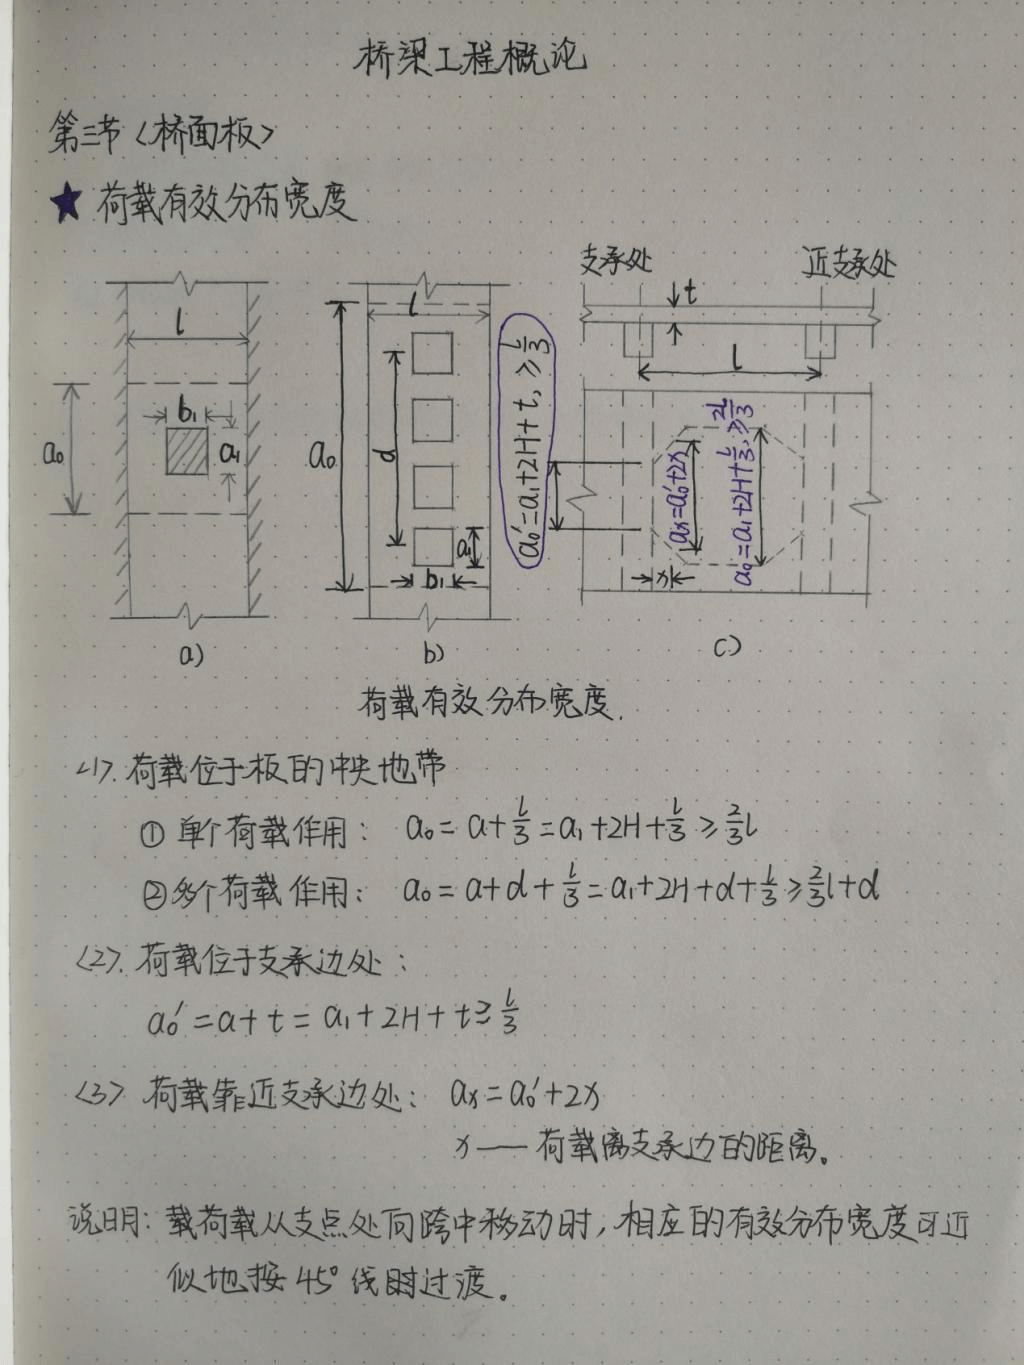 桥梁工程概论
第三节〈桥面板〉
★ 荷载有效分布宽度
支承处 近支承处
l
b₁
a₀
a₁
a)
l
a₀
d
a₁
b₁
b)
a₀′=a₁+2H+t, ≥l/3
t
l
aₓ=a₀′+2x
a₀=a₁+2H+l/3, ≥2l/3
x
c)
荷载有效分布宽度.
<1>. 荷载位于板的中央地带
① 单个荷载作用: a₀=a+l/3=a₁+2H+l/3≥2/3l
②多个荷载作用: a₀=a+d+l/3=a₁+2H+d+l/3≥2/3l+d
<2>. 荷载位于支承边处:
a₀′=a+t=a₁+2H+t≥l/3
<3> 荷载靠近支承边处: aₓ=a₀′+2x
x——荷载离支承边的距离。
说明: 载荷载从支点处向跨中移动时, 相应的有效分布宽度可近
似地按45°线时过渡。